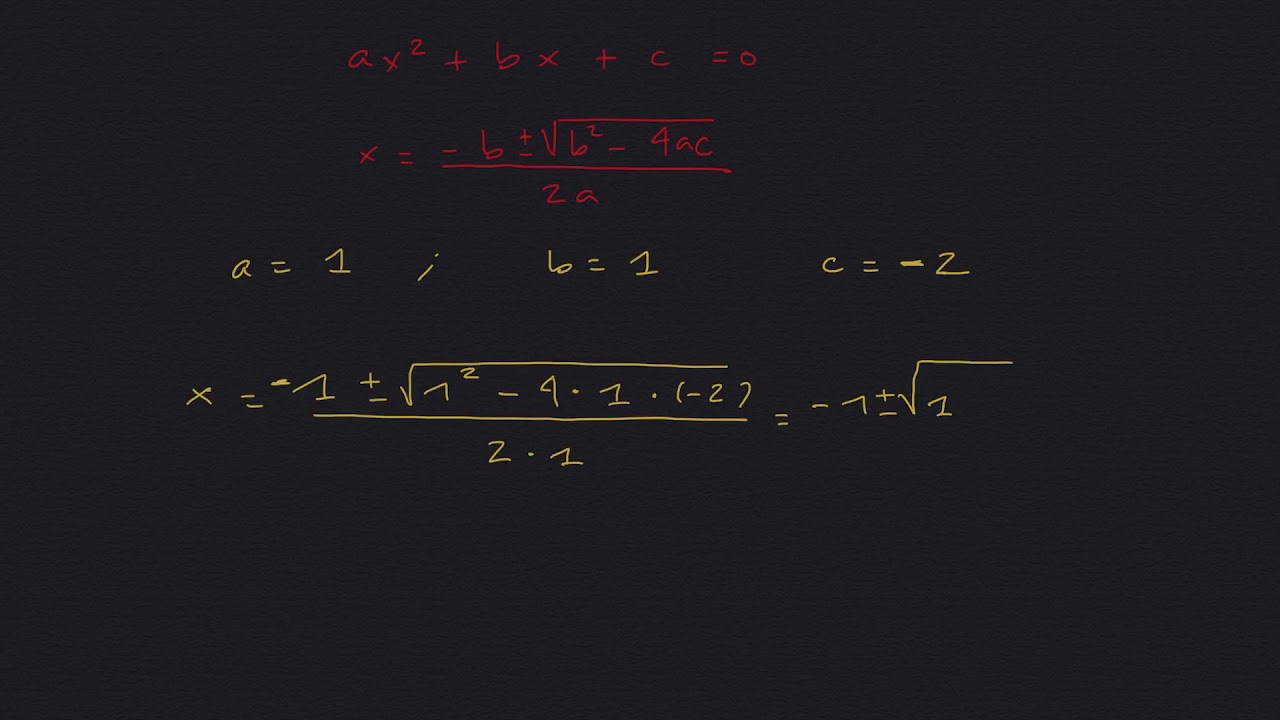 ax² + bx + c = 0
x = -b ± √b² - 4ac
2a
a = 1 ; b = 1 c = -2
x = -1 ± √1² - 4 · 1 · (-2) = -1 ± √1
2 · 1